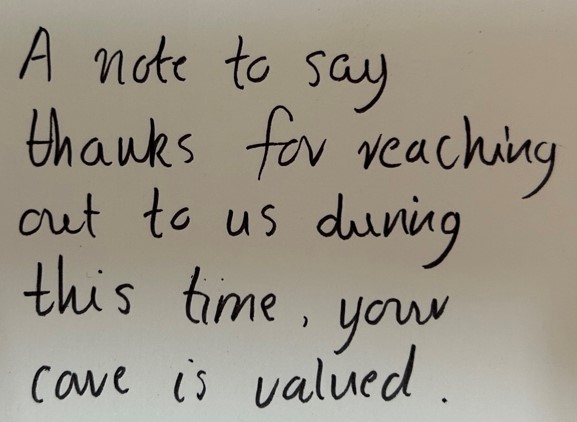 A note to say
thanks for reaching
out to us during
this time, your
care is valued.